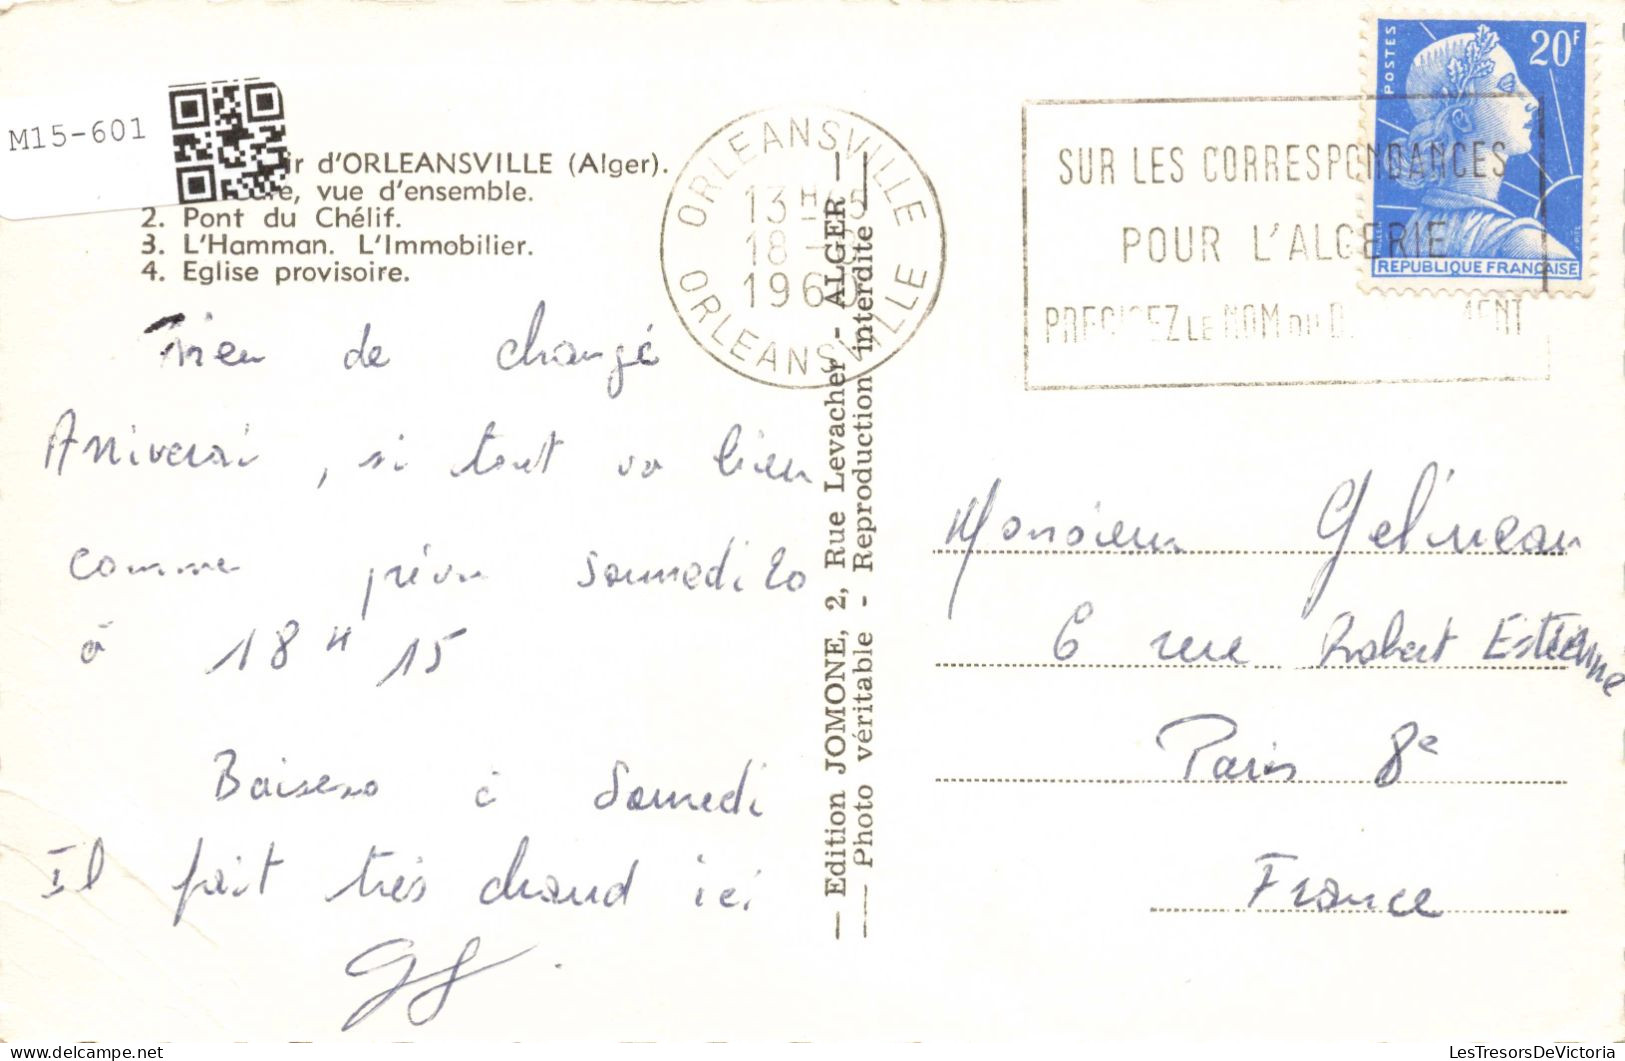 M15-601
d'ORLEANSVILLE (Alger).
vue d'ensemble.
2. Pont du Chélif.
3. L'Hamman. L'Immobilier.
4. Eglise provisoire.
Rien de changé
Arriverai, si tout va bien
comme prévu samedi 20
à 18 H 15
Baisers à Samedi
Il fait très chaud ici
— Edition JOMONE, 2, Rue Levacher - ALGER —
— Photo véritable - Reproduction interdite —
ORLEANSVILLE
13 H
18
1960
ORLEANSVILLE
SUR LES CORRESPONDANCES
POUR L'ALGERIE
PRECISEZ LE NOM DU
POSTES
20F
REPUBLIQUE FRANÇAISE
Monsieur Gelineau
6 rue Robert Estienne
Paris 8e
France
LesTresorsDeVictoria